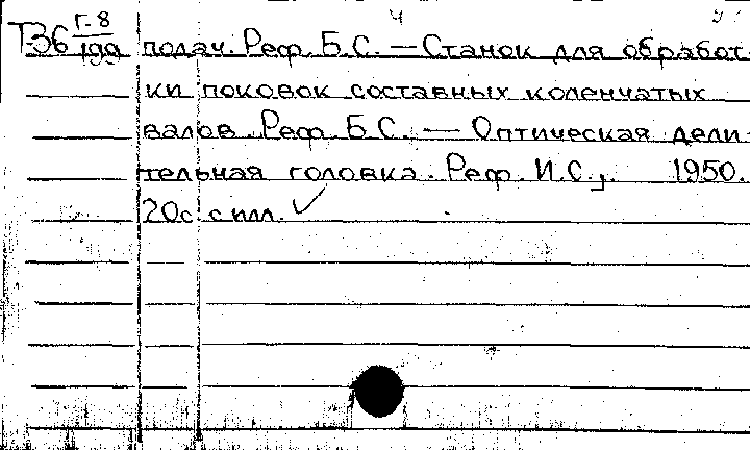 4
Т-36 Г-8 подач. Реф. Б.С. — Станок для обработ-
ки поковок составных коленчатых
валов. Реф. Б.С. — Оптическая дели-
тельная головка. Реф. И.С., 1950.
20с. с илл.